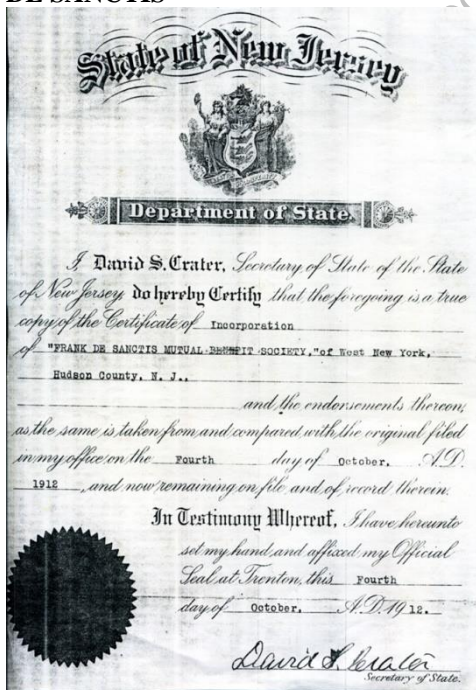 DE SANCTIS
State of New Jersey
Department of State.
I, David S. Crater, Secretary of State of the State
of New Jersey, do hereby Certify that the foregoing is a true
copy of the Certificate of Incorporation
of "FRANK DE SANCTIS MUTUAL BENEFIT SOCIETY," of West New York,
Hudson County, N. J.,
and the endorsements thereon,
as the same is taken from and compared with the original filed
in my office on the Fourth day of October, A.D.
1912, and now remaining on file and of record therein.
In Testimony Whereof, I have hereunto
set my hand and affixed my Official
Seal at Trenton, this Fourth
day of October, A.D. 1912.
David S. Crater
Secretary of State.